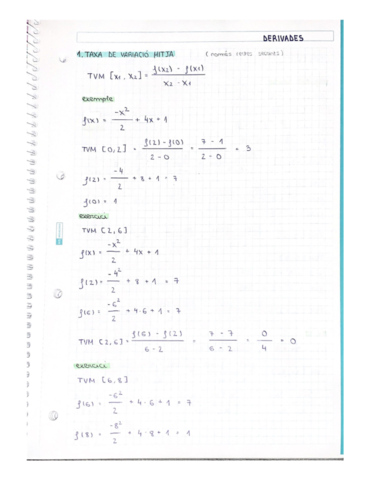 DERIVADES
1. TAXA DE VARIACIÓ MITJA
TVM [x1, x2] = f(x2) - f(x1) / x2 - x1
exemple
f(x) = -x² / 2 + 4x + 1
TVM [0,2] = f(2) - f(0) / 2 - 0 = 7 - 1 / 2 - 0 = 3
f(2) = -4 / 2 + 8 + 1 = 7
f(0) = 1
exercici
TVM [2,6]
f(x) = -x² / 2 + 4x + 1
f(2) = -4² / 2 + 8 + 1 = 7
f(6) = -6² / 2 + 4·6 + 1 = 7
TVM [2,6] = f(6) - f(2) / 6 - 2 = 7 - 7 / 6 - 2 = 0 / 4 = 0
exercici
TVM [6,8]
f(6) = -6² / 2 + 4·6 + 1 = 7
f(8) = -8² / 2 + 4·8 + 1 = 1